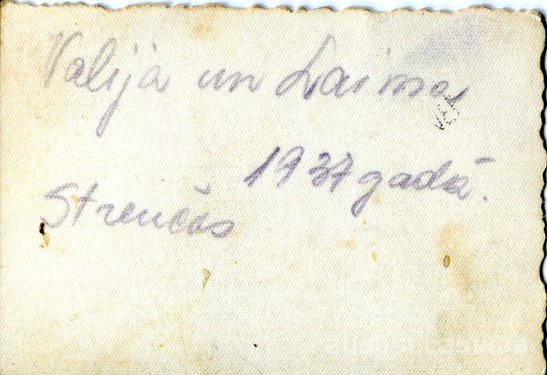 Valija un Laima
1937 gadā.
Strenčos